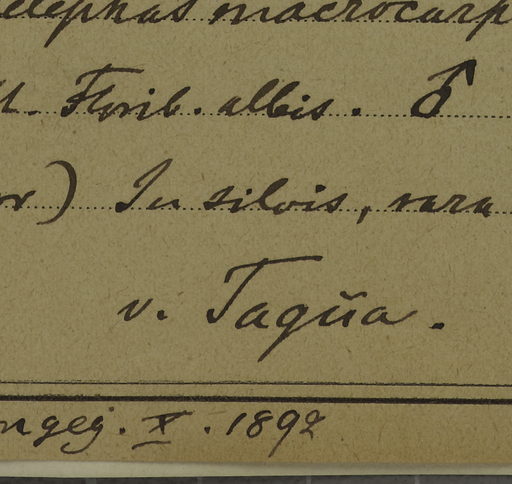 elephas macrocarp
Florib. albis. ♂
or) In silvis, rara
v. Tagŭa.
ngeg. X. 1892